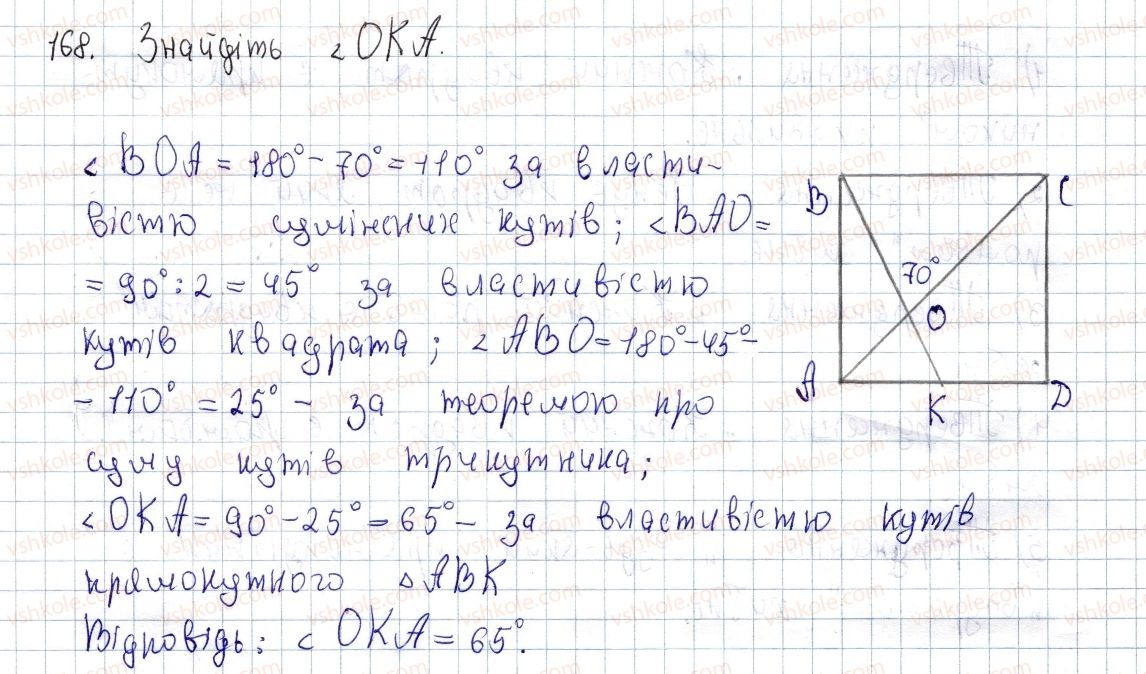 168. Знайдіть ∠OKA.
∠BOA = 180° - 70° = 110° за власти-
вістю суміжних кутів; ∠BAO =
= 90° : 2 = 45° за властивістю
кутів квадрата; ∠ABO = 180° - 45° -
- 110° = 25° - за теоремою про
суму кутів трикутника;
∠OKA = 90° - 25° = 65° - за властивістю кутів
прямокутного △ABK
Відповідь: ∠OKA = 65°.
B C
70°
O
A K D
vshkole.com